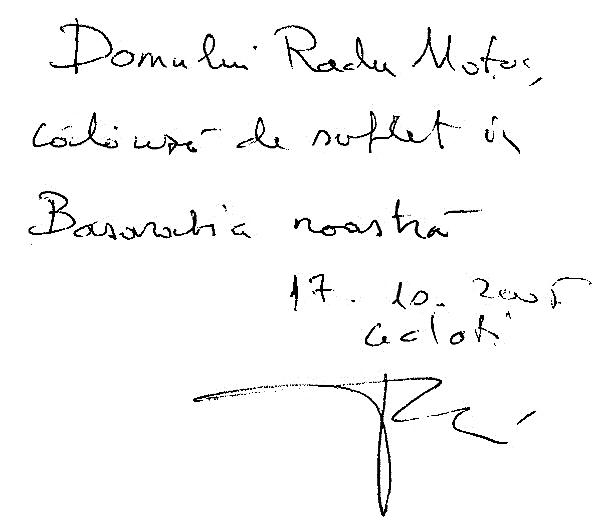 Domnului Radu Motoc,
călăuză de suflet în
Basarabia noastră
17. 10. 2005
Galați